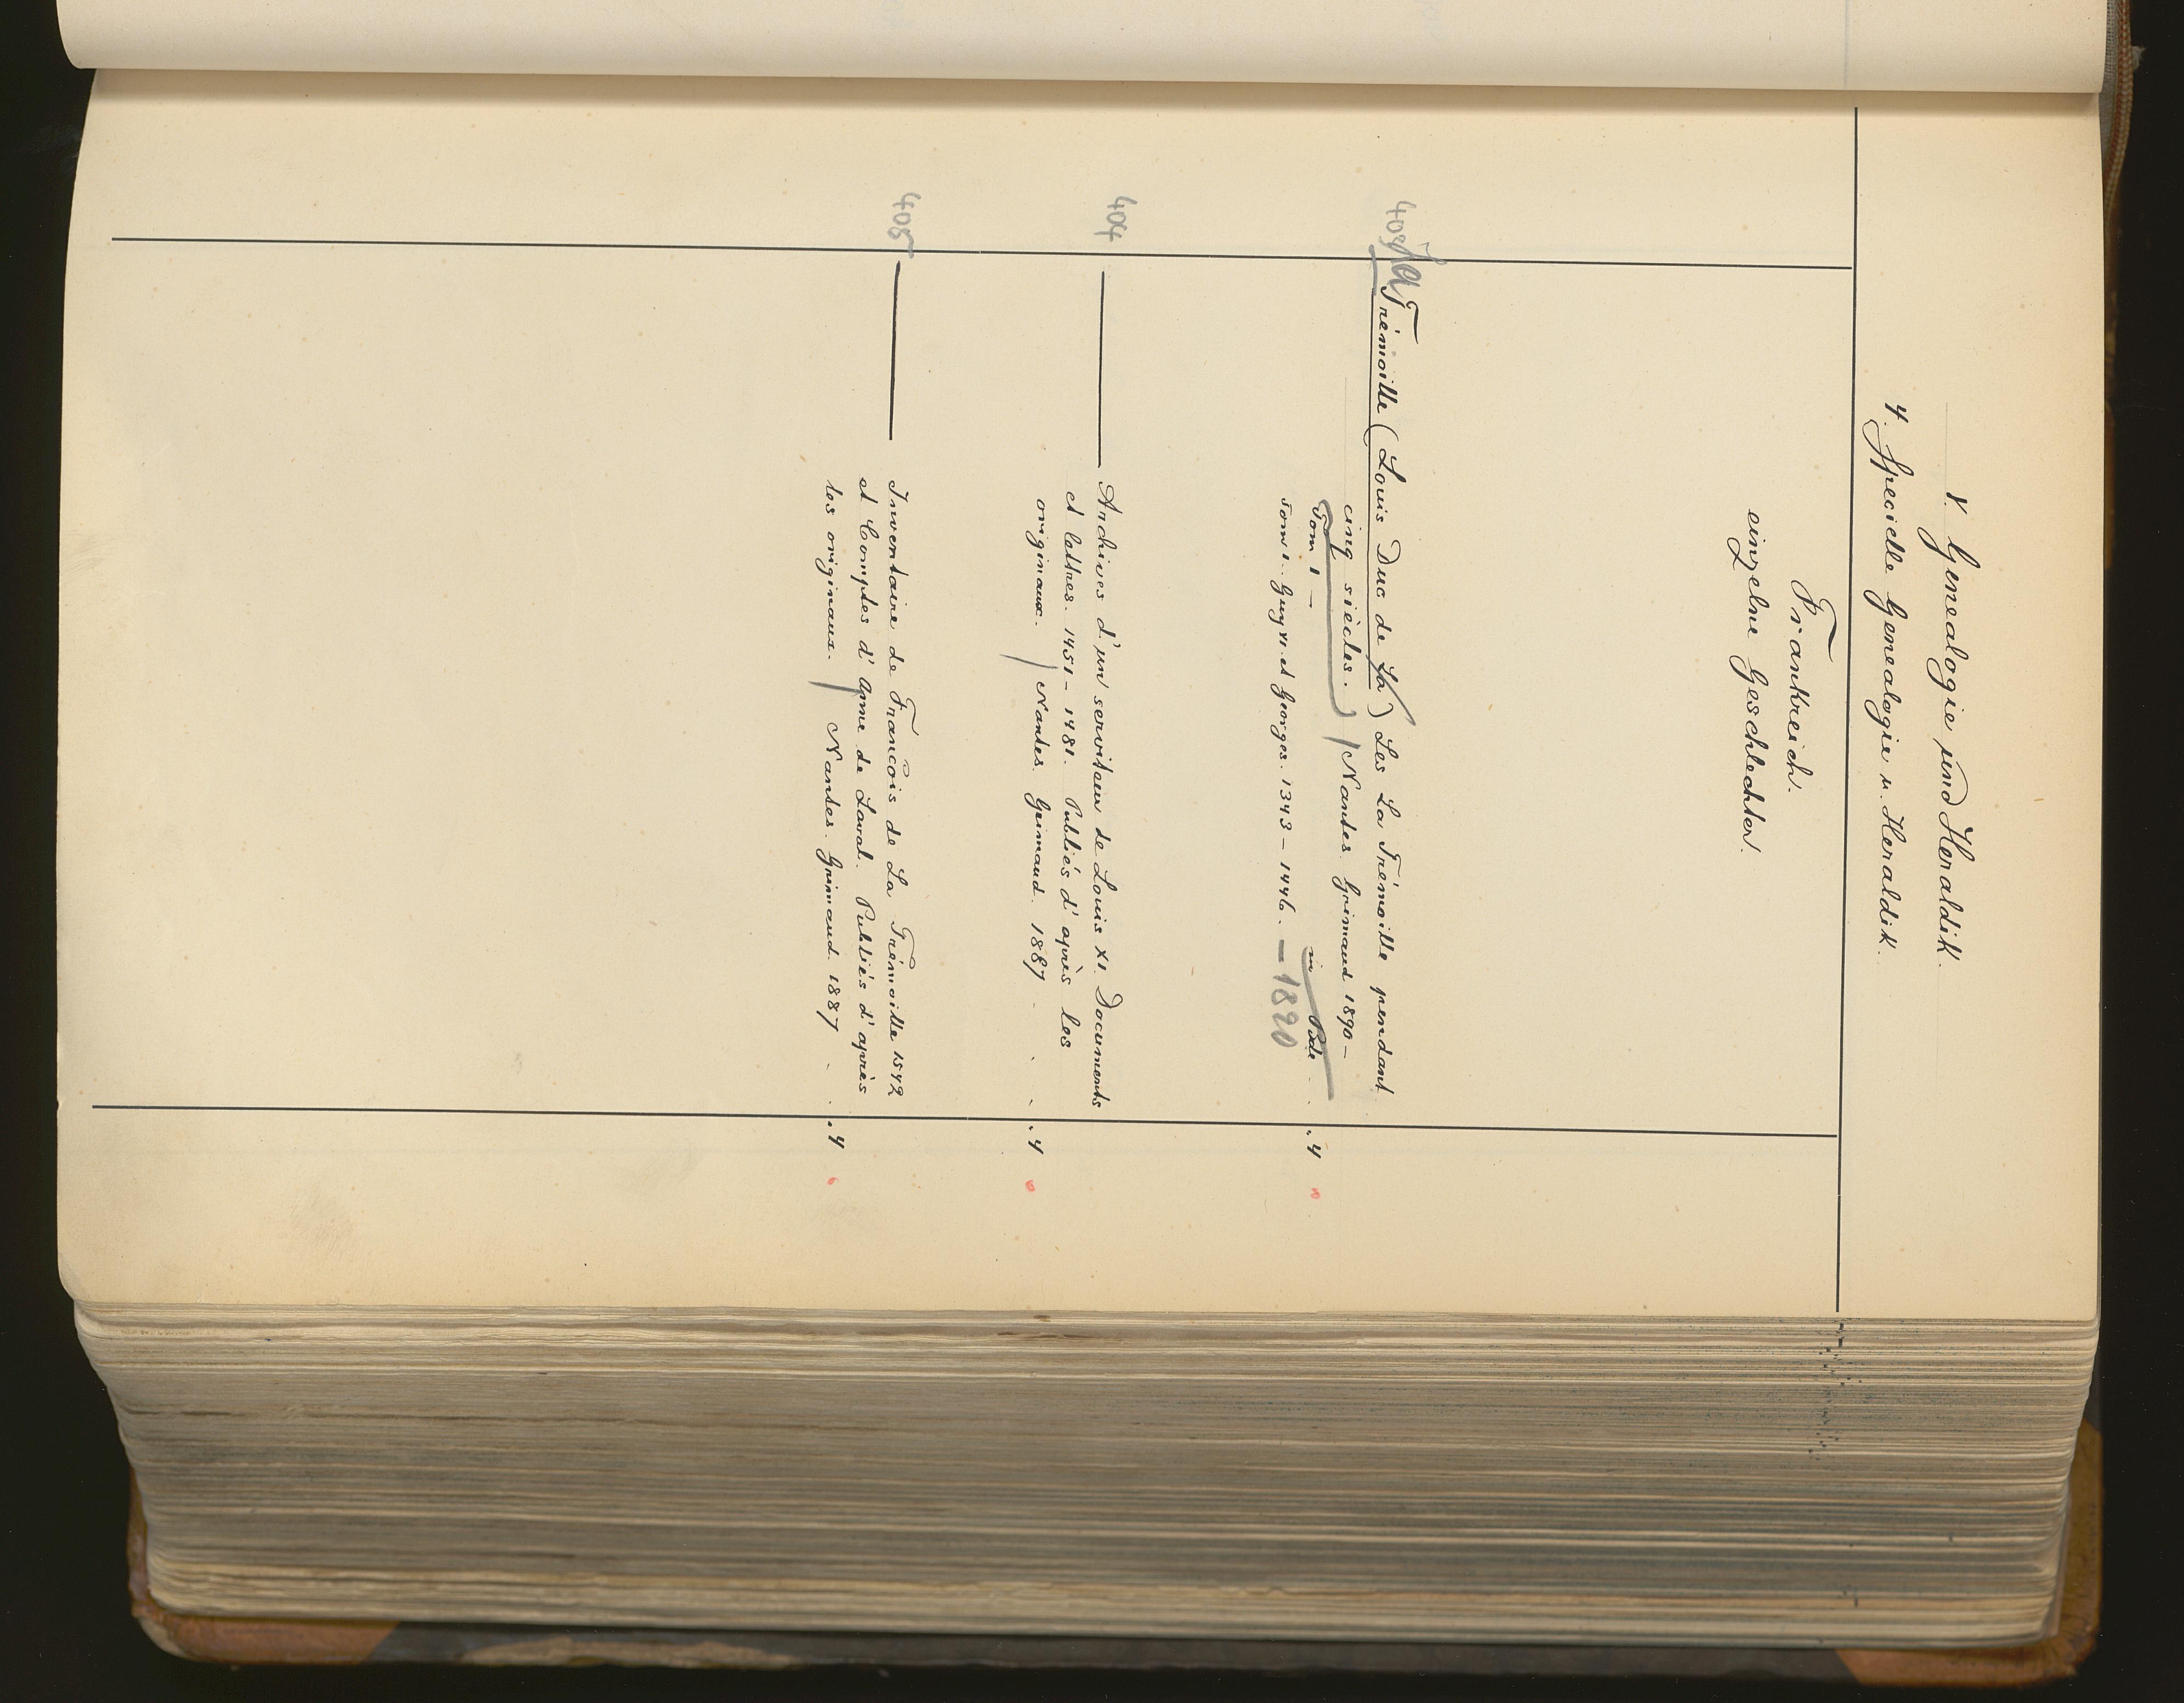 V. Genealogie und Heraldik.
4. Specielle Genealogie u. Heraldik.
Frankreich.
einzelne Geschlechter.
403 La Trémoille (Louis Duc de La) Les La Trémoille pendant
cinq siècles. Nantes. Grimaud 1890 –
Tom 1 – in Bde . . 4
Tom 1. Guy VI et Georges. 1343 – 1446. – 1890
404 ——— Archives d'un serviteur de Louis XI. Documents
et lettres. 1451 – 1481. Publiés d'après les
originaux. / Nantes. Grimaud. 1887 . . . . 4
405 ——— Inventaire de François de La Trémoille 1542
et Comptes d'Anne de Laval. Publiés d'après
les originaux. / Nantes. Grimaud. 1887 . . . 4